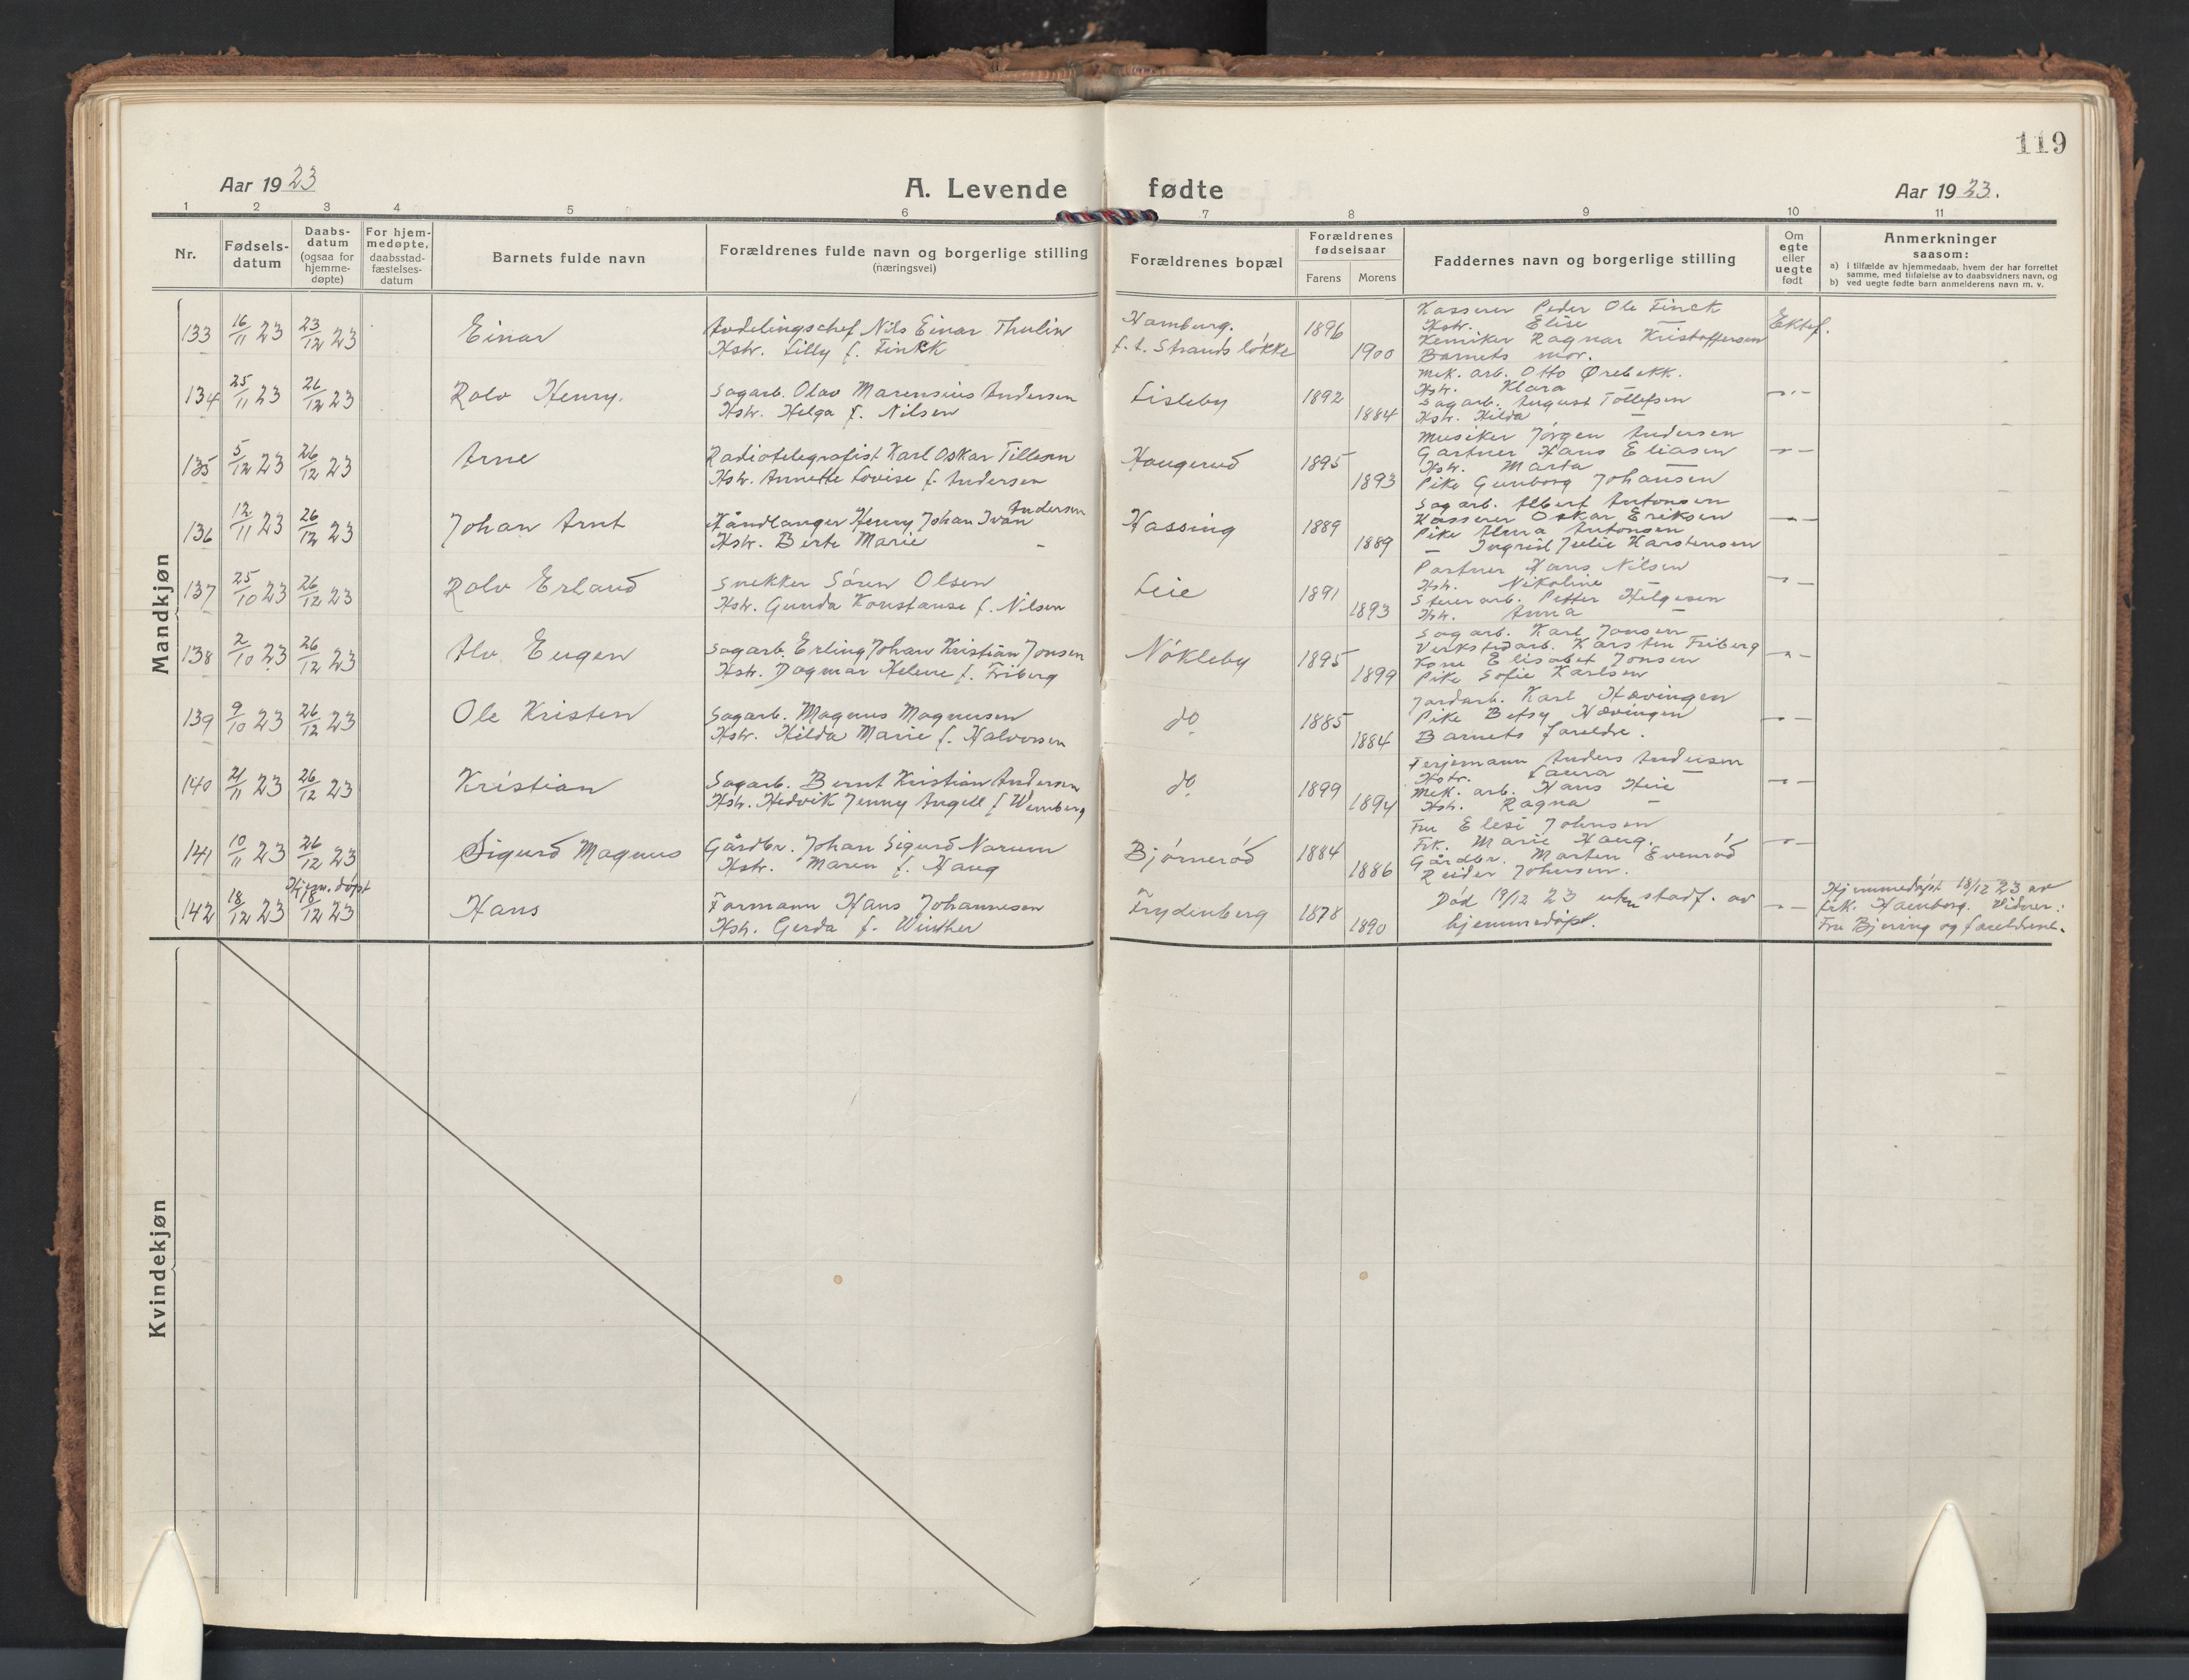 119
Aar 1923
A. Levende fødte
Aar 1923.
1 2 3 4 5 6 7 8 9 10 11
Nr.
Fødsels-
datum
Daabs-
datum
(ogsaa for
hjemme-
døpte)
For hjem-
medøpte,
daabsstad-
fæstelses-
datum
Barnets fulde navn
Forældrenes fulde navn og borgerlige stilling
(næringsvei)
Forældrenes bopæl
Forældrenes
fødselsaar
Farens Morens
Faddernes navn og borgerlige stilling
Om
egte
eller
uegte
født
Anmerkninger
saasom:
a) i tilfælde av hjemmedaab, hvem der har forrettet
samme, med tilføielse av to daabsvidners navn, og
b) ved uegte fødte barn anmelderens navn m. v.
Mandkjøn
133 16/11 23 23/12 23 Einar
Avdelingschef Nils Einar Thulin
Hstr. Lilly f. Finck
Hamburg.
f. t. Strands løkke
1896 1900
Kasserer Peder Ole Finck
Hstr. Elise —
Kemiker Ragnar Kristoffersen
Barnets mor.
Ektef.
134 25/11 23 26/12 23 Rolv Henry.
Sagarb. Olav Marensius Andersen
Hstr. Helga f. Nilsen
Lisleby
1892 1884
Mek. arb. Otto Ørebekk.
Hstr. Klara
Sagarb. August Tollefsen
Hstr. Hilda —
-"-
135 5/12 23 26/12 23 Arne
Radiotelegrafist Karl Oskar Tillesen
Hstr. Annette Lovise f. Andersen
Haugerud
1895 1893
Musiker Jörgen Andersen
Gartner Hans Eliasen
Hstr. Marta —
Pike Gunborg Johansen
-"-
136 12/11 23 26/12 23 Johan Arnt
Håndlanger Henny Johan Ivan Andersen
Hstr. Berte Marie -
Hassing
1889 1889
Sagarb. Albert Antonsen
Kasserer Oskar Eriksen
Pike Alma Antonsen
— Ingrid Julie Karstensen
-"-
137 25/10 23 26/12 23 Rolv Erland
Snekker Sören Olsen
Hstr. Gunda Konstanse f. Nilsen
Leie
1891 1893
Partner Hans Nilsen
Hstr. Nikoline —
Steierarb. Petter Helgesen
Hstr. Anna —
-"-
138 2/10 23 26/12 23 Alv Eugen
Sagarb. Erling Johan Kristian Jonsen
Hstr. Dagmar Helene f. Friberg
Nökleby
1895 1899
Sagarb. Karl Jonsen
Verkstedarb. Karsten Friberg
Kone Elisabet Jonsen
Pike Sofie Karlsen
-"-
139 9/10 23 26/12 23 Ole Kristen
Sagarb. Magnus Magnusen
Hstr. Hilda Marie f. Halvorsen
do
1885 1884
Jordarb. Karl Hævingen
Pike Betsy Hævingen
Barnets foreldre.
-"-
140 21/11 23 26/12 23 Kristian
Sagarb. Bernt Kristian Andersen
Hstr. Hedvik Jenny Angell f. Wernberg
do
1899 1894
Ferjemann Anders Andersen
Hstr. Laura —
Mek. arb. Hans Heie
Hstr. Ragna —
-"-
141 10/11 23 26/12 23 Sigurd Magnus
Gårdbr. Johan Sigurd Narum
Hstr. Maren f. Haug
Bjørnerød
1884 1886
Fru Elesi Johnsen
Frk. Marie Haug.
Gårdbr. Marten Evenrød
Reider Johnsen.
-"-
142 18/12 23 Hjem. döpt 18/12 23 Hans
Formann Hans Johannesen
Hstr. Gerda f. Winther
Frydenberg
1878 1890
Död 19/12 23 uten stadf. av
hjemmedöpt.
-"-
Hjemmedöpt 18/12 23 av
frk. Hamborg. Vidner:
Fru Bjering og foreldrene.
Kvindekjøn